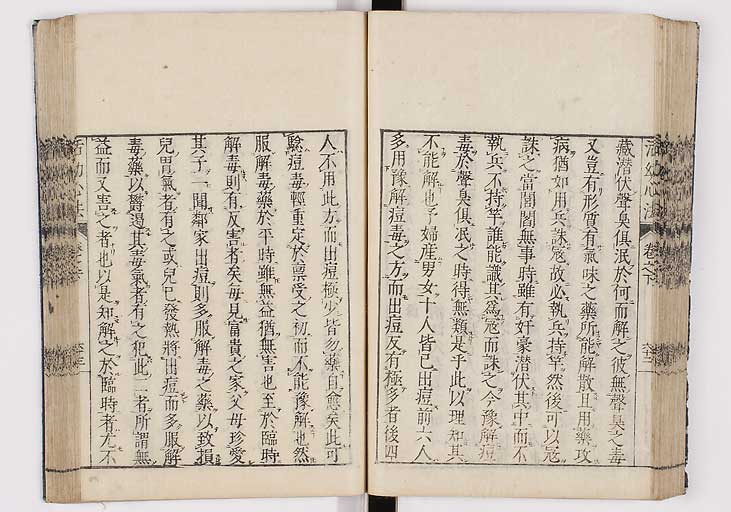 活幼心法 卷之下
藏潛伏聲臭俱泯於何而解之彼無聲臭之毒
又豈有形質有氣味之藥所能解散且用藥攻
病猶如用兵誅寇故必執兵持竿然後可以寇
誅之當閭閻無事時雖有奸豪潛伏其中而不
執兵不持竿誰能識其爲寇而誅之今豫解痘
毒於聲臭俱泯之時得無類是乎此以理知其
不能解也予婦產男女十人皆已出痘前六人
多用豫解痘毒之方而出痘反有極多者後四
人不用此方而出痘極少皆勿藥自愈矣此可
驗痘毒輕重定於稟受之初而不能豫解也然
服解毒藥於平時雖無益猶無害也至於臨時
解毒則有反害者矣每見富貴之家父母珍愛
其子一聞鄰家出痘則多服解毒之藥以致損
兒胃氣者有之或兒已發熱將出痘而多服解
毒藥以欝遏其毒氣者有之犯此二者所謂無
益而又害之者也以是知解之於臨時者尤不
活幼心法